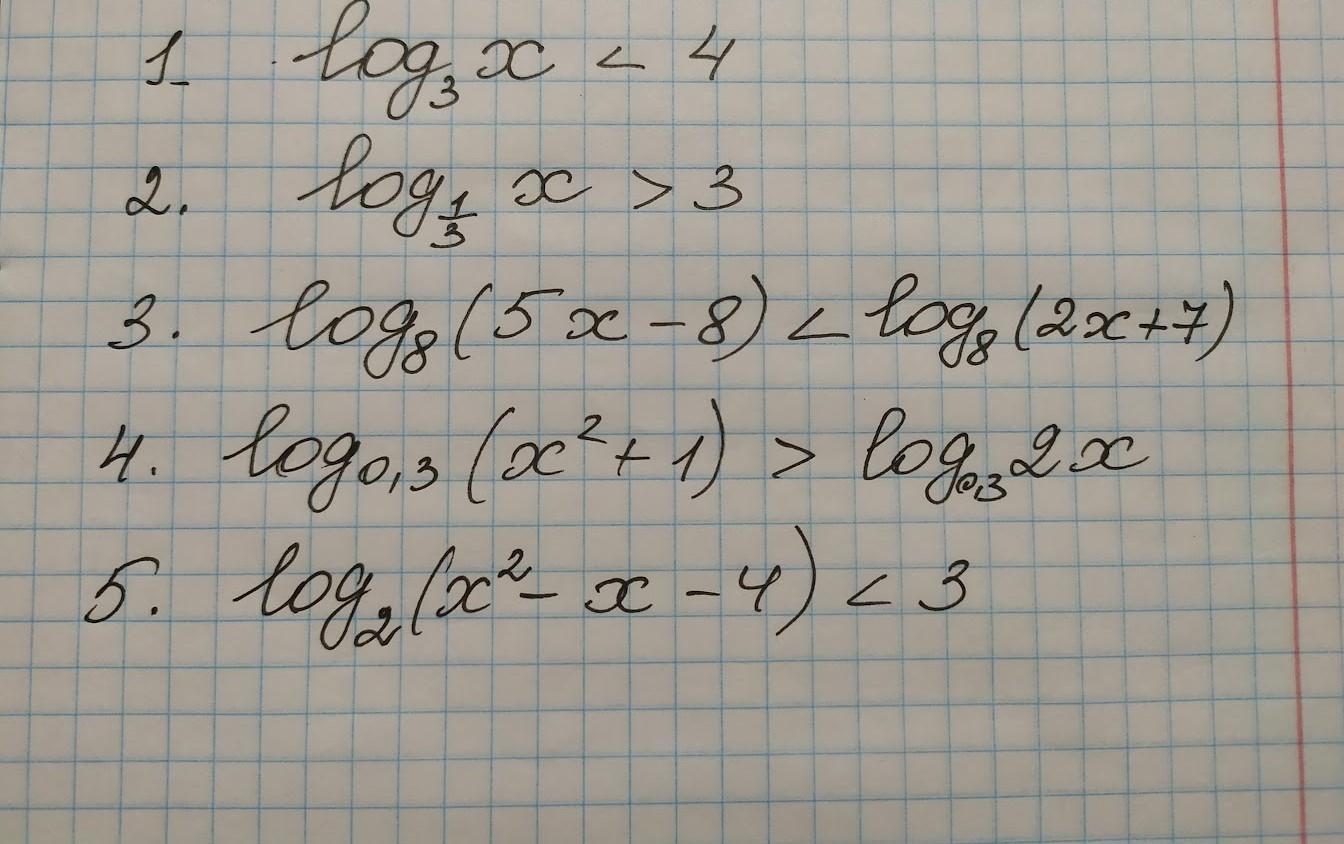 1. log₃ x < 4
2. log_{1/3} x > 3
3. log₈(5x - 8) < log₈(2x+7)
4. log₀,₃ (x² + 1) > log₀,₃ 2x
5. log₂(x² - x - 4) < 3